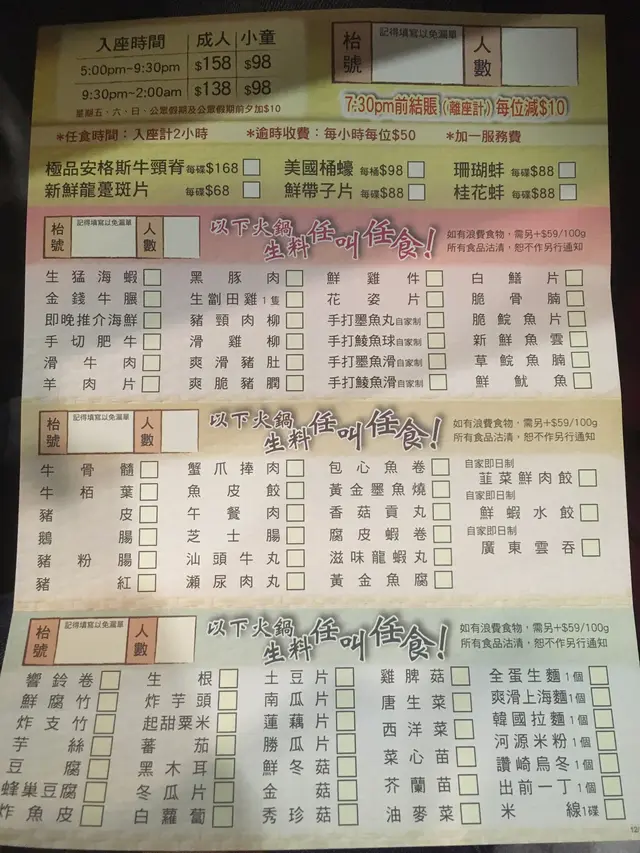 入座時間 成人 小童
5:00pm~9:30pm $158 $98
9:30pm~2:00am $138 $98
星期五、六、日、公眾假期及公眾假期前夕加$10
枱號 記得填寫以免漏單 人數
7:30pm前結賬(離座計)每位減$10
*任食時間：入座計2小時 *逾時收費：每小時每位$50 *加一服務費
極品安格斯牛頸脊 每碟$168 美國桶蠔 每桶$98 珊瑚蚌 每碟$88
新鮮龍躉斑片 每碟$68 鮮帶子片 每碟$88 桂花蚌 每碟$88
枱號 記得填寫以免漏單 人數 以下火鍋生料任叫任食! 如有浪費食物，需另+$59/100g
所有食品沽清，恕不作另行通知
生猛海蝦 黑豚肉 鮮雞件 白鱔片
金錢牛𦟌 生劏田雞 1隻 花姿片 脆骨腩
即晚推介海鮮 豬頸肉柳 手打墨魚丸 自家制 脆鯇魚片
手切肥牛 滑雞柳 手打鯪魚球 自家制 新鮮魚雲
滑牛肉 爽滑豬肚 手打墨魚滑 自家制 草鯇魚腩
羊肉片 爽脆豬膶 手打鯪魚滑 自家制 鮮魷魚
枱號 記得填寫以免漏單 人數 以下火鍋生料任叫任食! 如有浪費食物，需另+$59/100g
所有食品沽清，恕不作另行通知
牛骨髓 蟹爪捧肉 包心魚卷 自家即日制 韮菜鮮肉餃
牛栢葉 魚皮餃 黃金墨魚燒 自家即日制
豬皮 午餐肉 香菇貢丸 鮮蝦水餃
鵝腸 芝士腸 腐皮蝦卷 自家即日制
豬粉腸 汕頭牛丸 滋味龍蝦丸 廣東雲吞
豬紅 瀨尿肉丸 黃金魚腐
枱號 記得填寫以免漏單 人數 以下火鍋生料任叫任食! 如有浪費食物，需另+$59/100g
所有食品沽清，恕不作另行通知
響鈴卷 生根 土豆片 雞脾菇 全蛋生麵 1個
鮮腐竹 炸芋頭 南瓜片 唐生菜 爽滑上海麵 1個
炸支竹 起甜粟米 蓮藕片 西洋菜 韓國拉麵 1個
芋絲 蕃茄 勝瓜片 菜心苗 河源米粉 1個
豆腐 黑木耳 鮮冬菇 芥蘭苗 讚崎烏冬 1個
蜂巢豆腐 冬瓜片 金菇 油麥菜 出前一丁 1個
炸魚皮 白蘿蔔 秀珍菇 米線 1碟